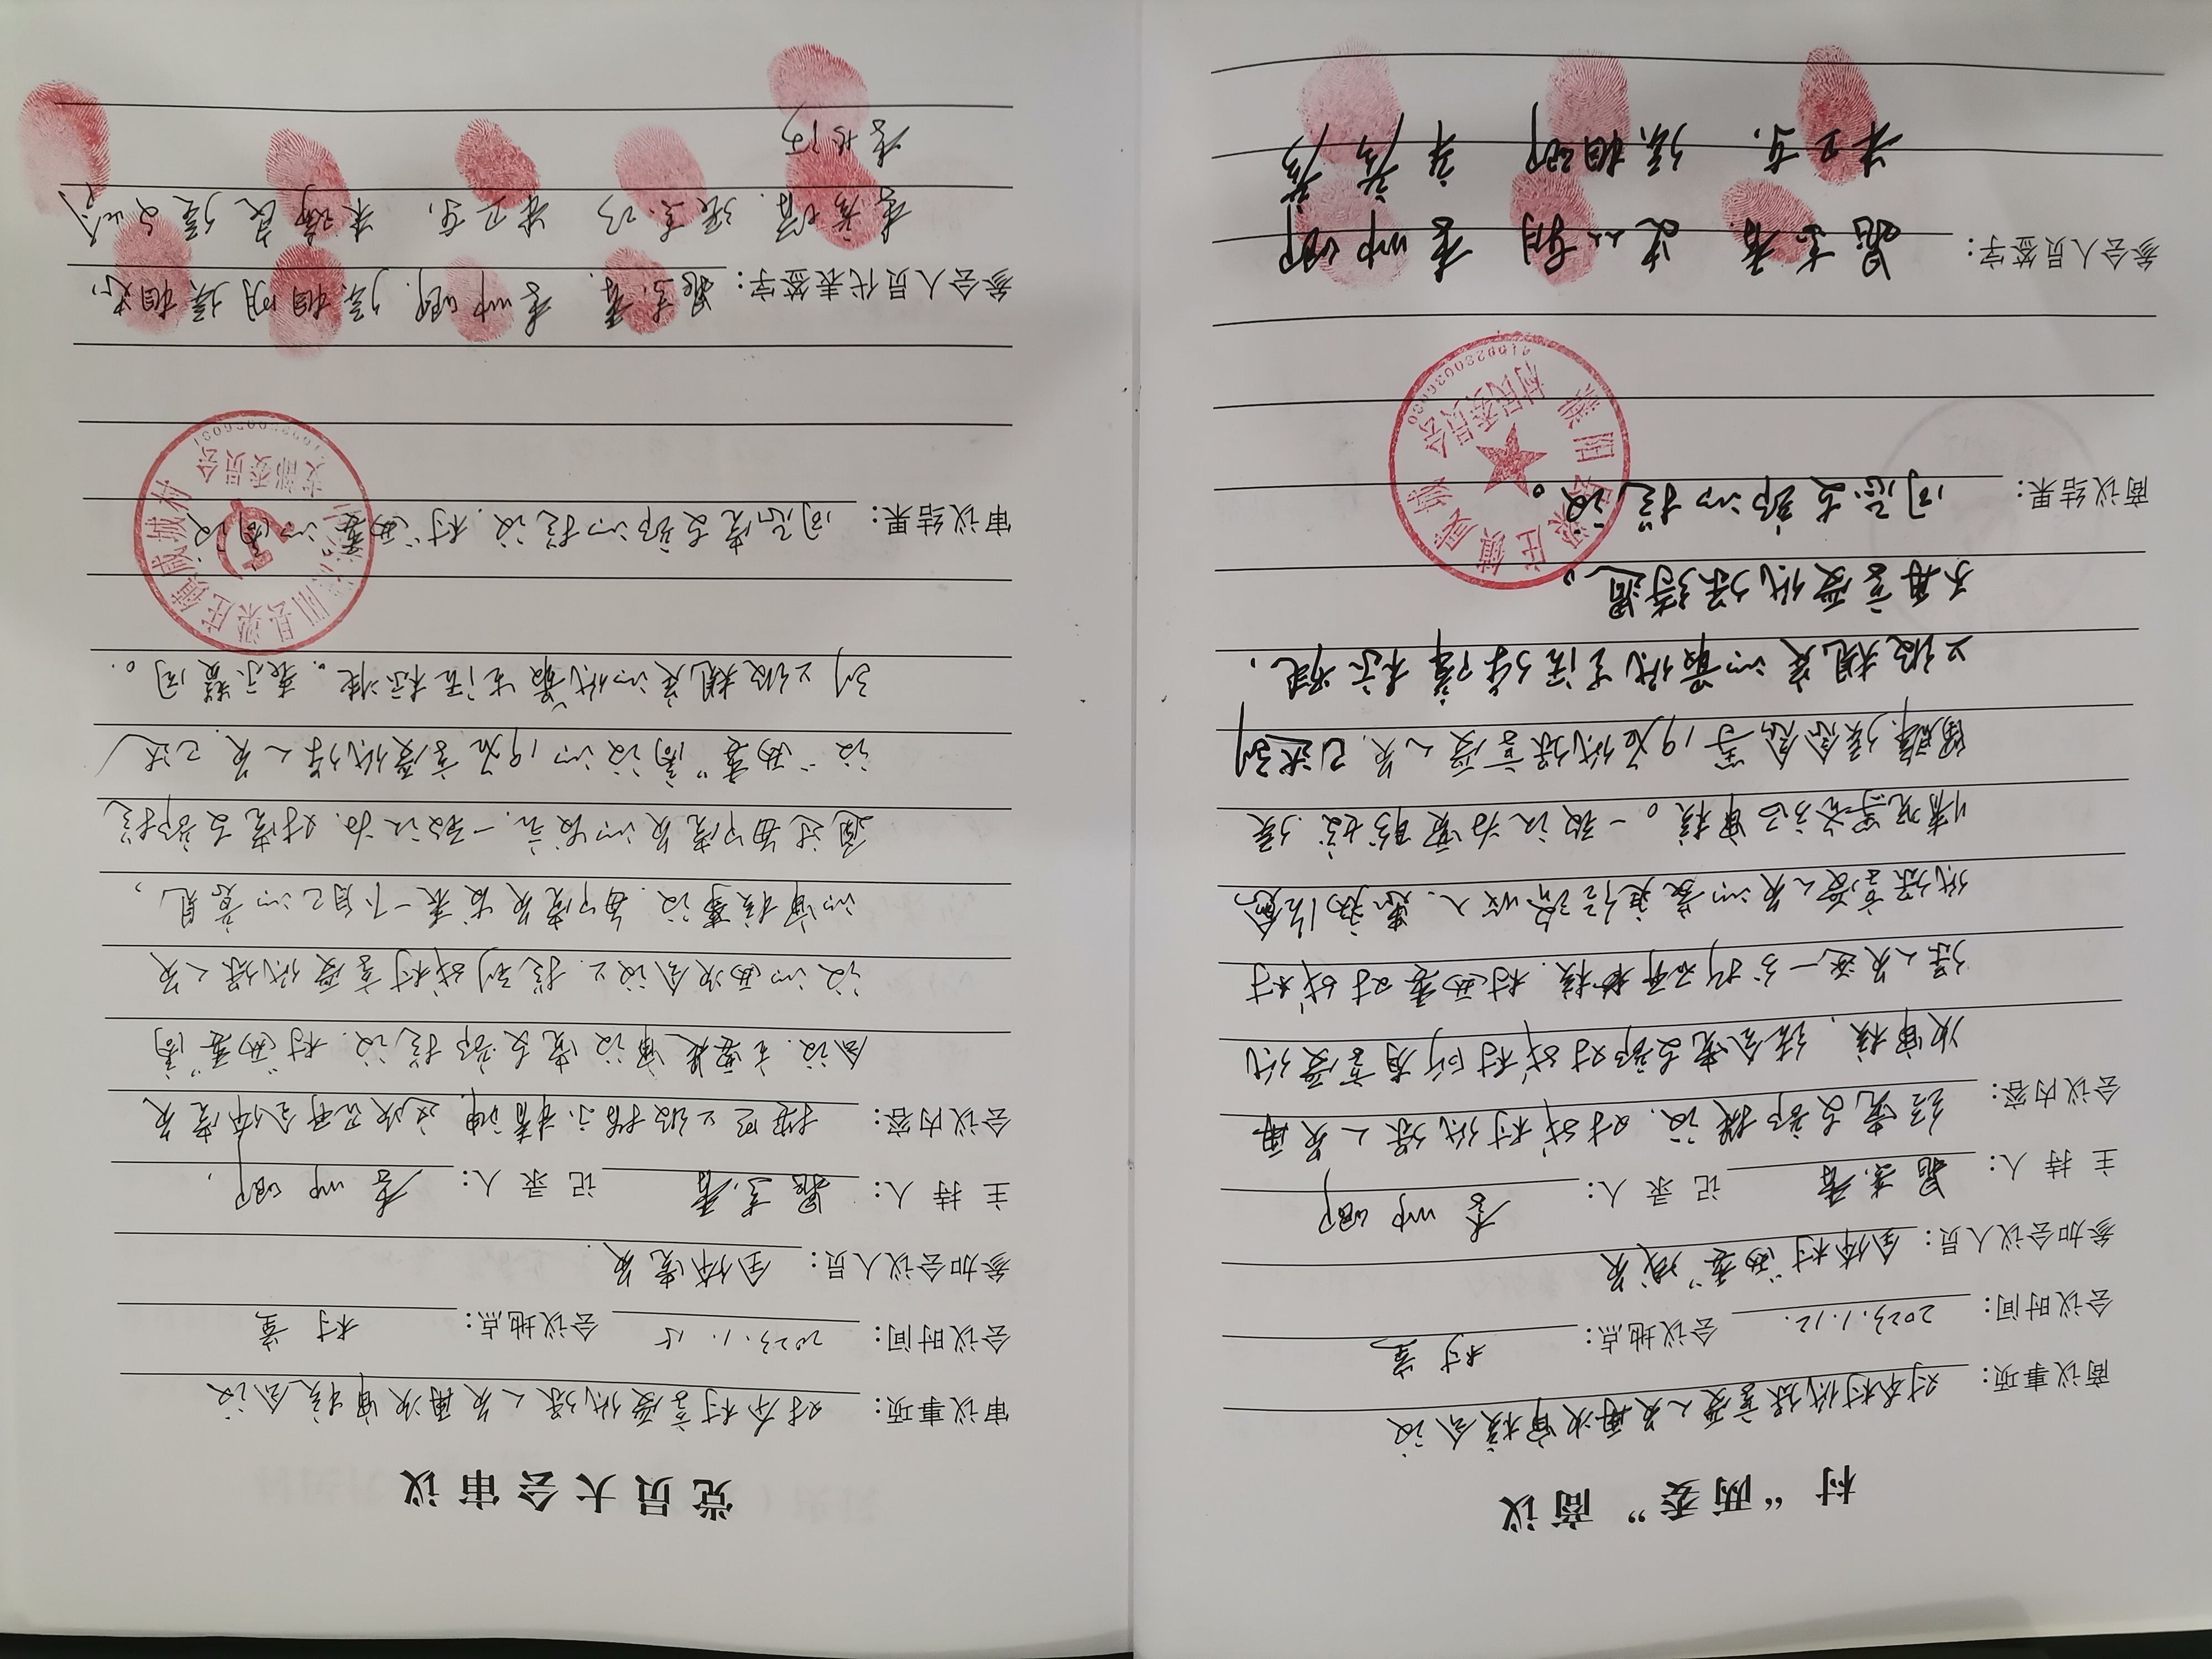 村“两委”商议
商议事项：对本村低保享受人员再次审核会议
会议时间：2023.1.12. 会议地点：村室
参加会议人员：全体村“两委”成员
主持人：晁素香 记录人：李帅卿
会议内容：经党支部提议、对我村低保人员再
次审核、结合党支部对我村所有享受低
保人员逐一分析研核、村两委对我村
低保享受人员的家庭经济收入、患病治愈
情况等各方面审核。一致认为贾盼姣、侯
留群、侯念念等19名低保享受人员、已达到
上级规定的最低生活保障标准，
不再享受低保待遇。
商议结果：同意支部的提议。
县梁庄镇咸城
村民委员会
参会人员签字：晁素香 史以朝 李帅卿
朱卫东 侯相卿 辛彦彦
党员大会审议
审议事项：对本村享受低保人员再次审核会议
会议时间：2023.1.15 会议地点：村室
参加会议人员：全体党员.
主持人：晁素香 记录人：李帅卿，
会议内容：按照上级指示精神、这次召开全体党员
会议、主要是审议党支部提议、村“两委”商
议的两次会议上、提到我村享受低保人员
的审核事议、每个党员发表一下自己的意见，
通过每个党员的发言、一致认为、对党支部提
议“两委”商议的19名享受低保人员、已达
到上级规定的低最生活标准。表示赞同。
审议结果：同意党支部的提议、村“两委”的商议
阳县梁庄镇咸城村
支部委员会
参会人员代表签字：晁素香、李帅卿、侯相明 侯相忠
李彦增、张素巧 朱卫东 朱瑞良 侯文岭
李长河